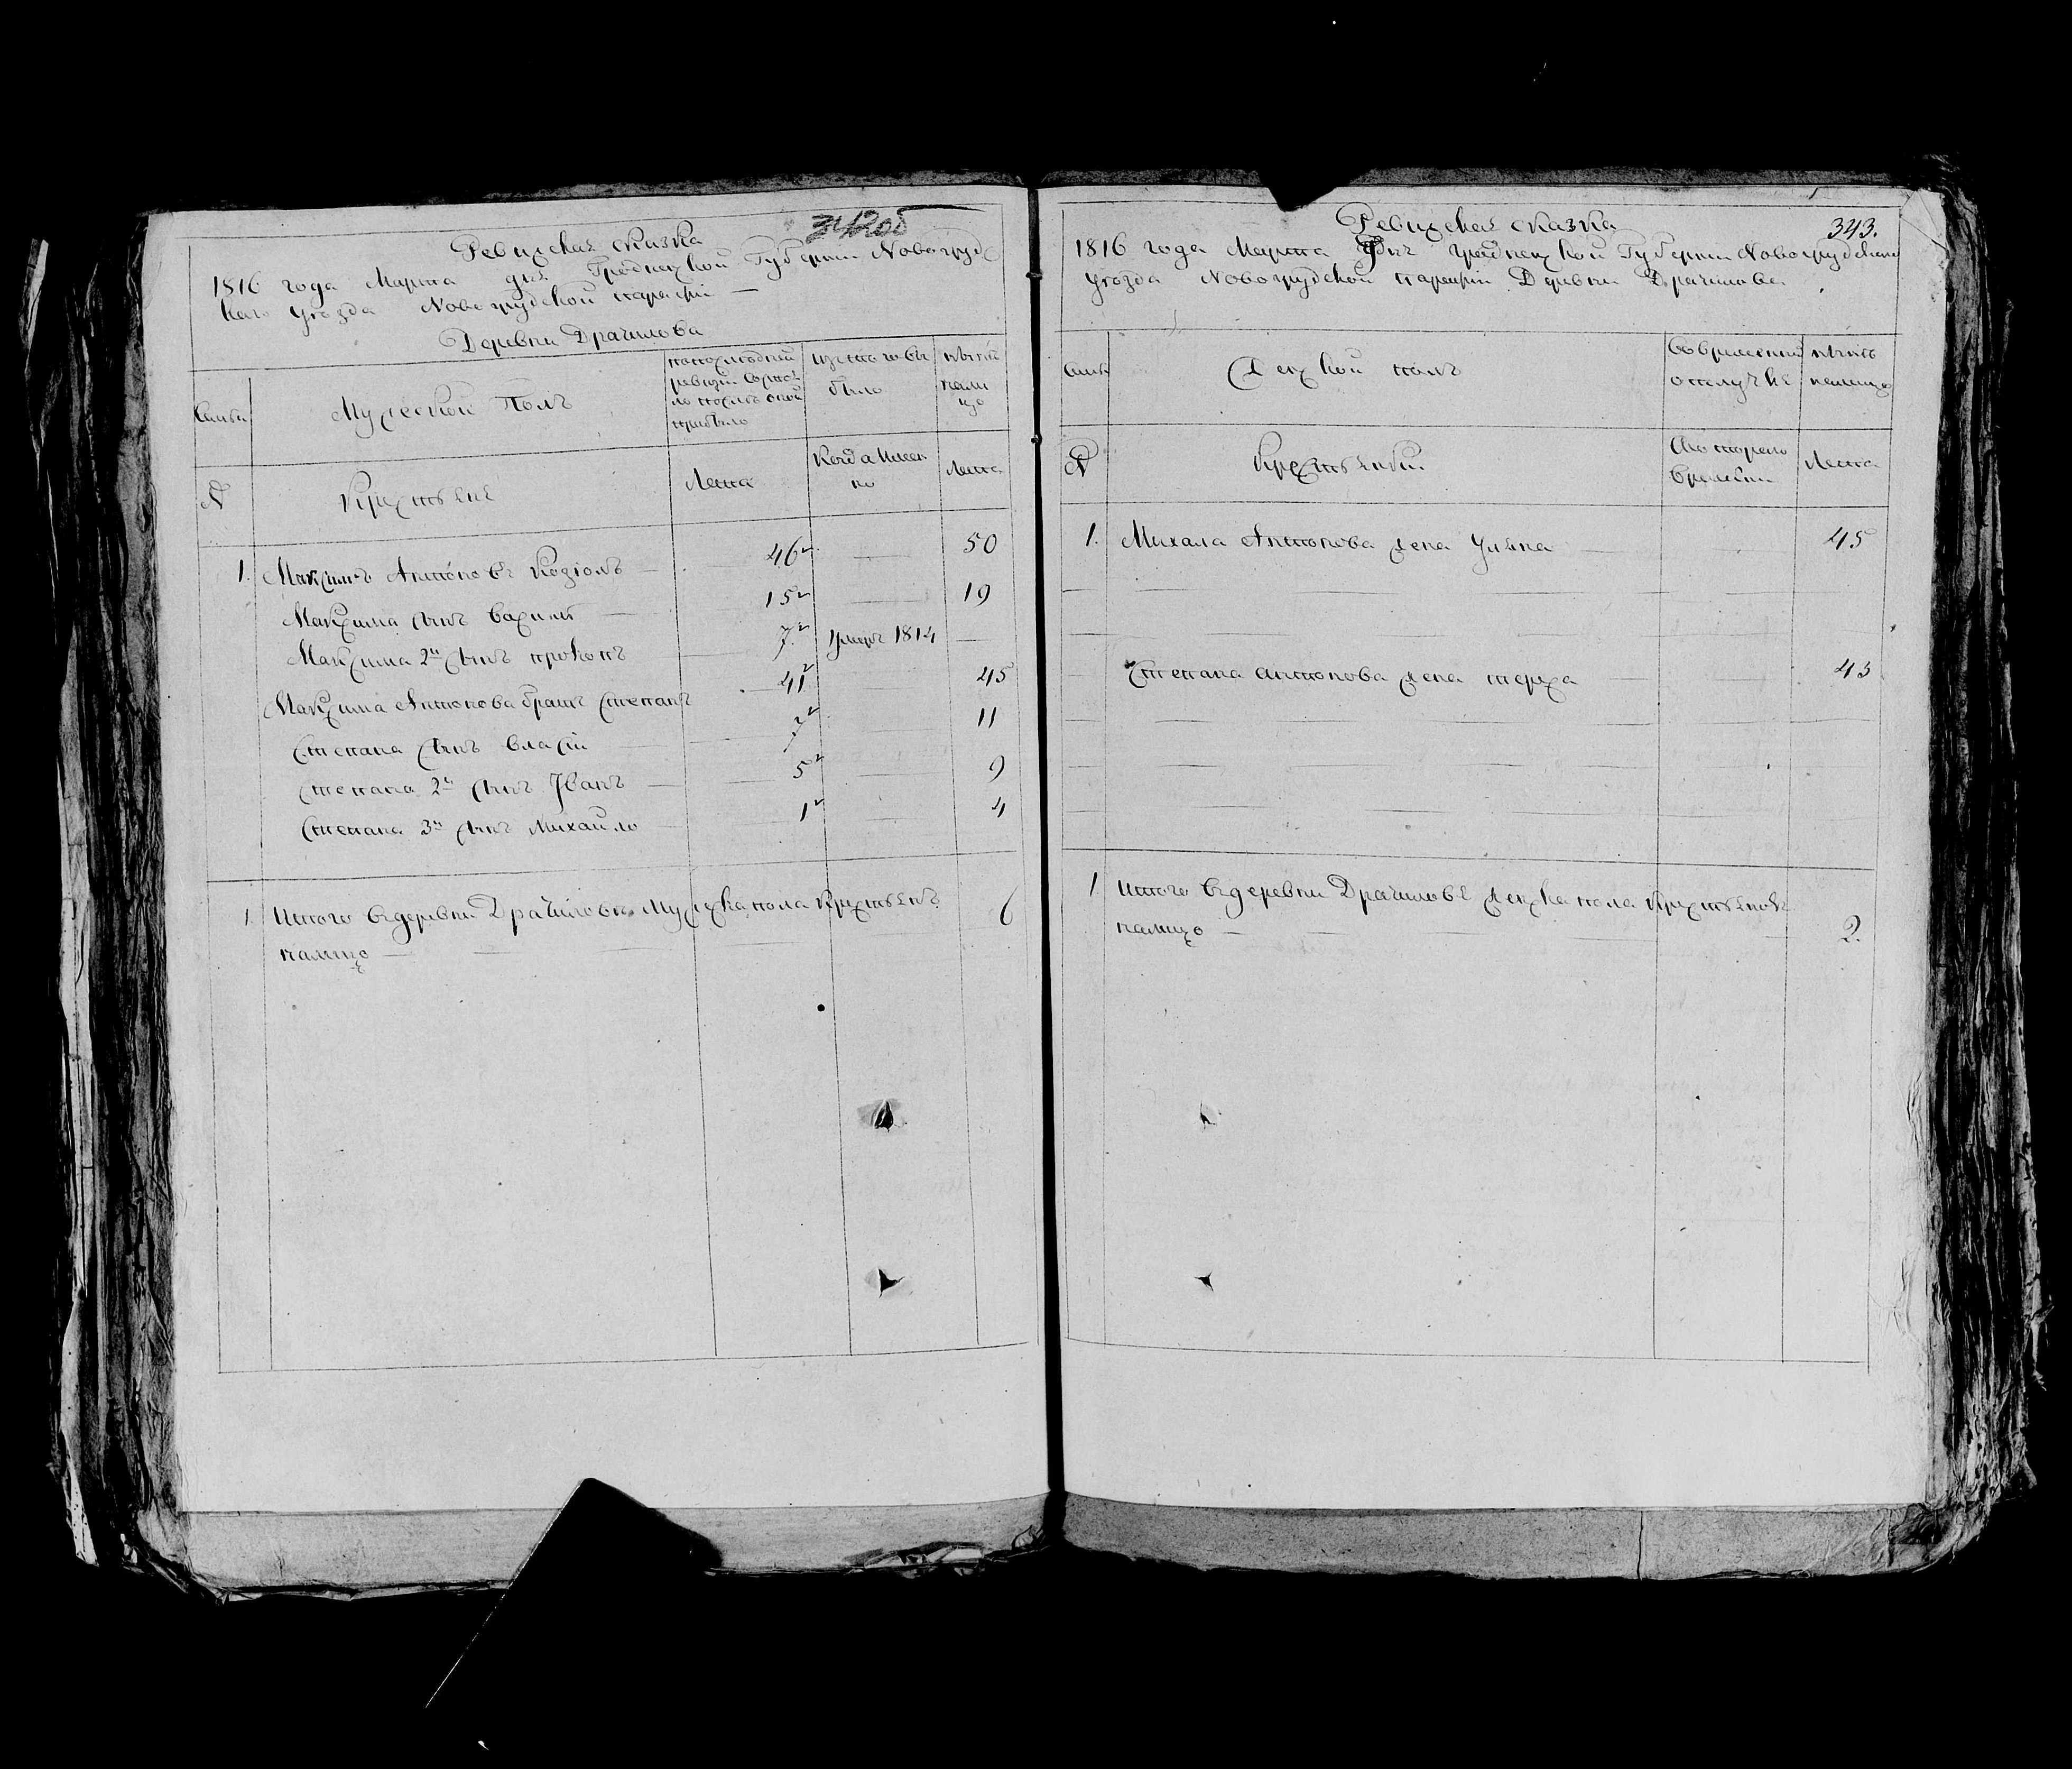 342об
Ревижская сказка
1816 года Марта дня Гродненской Губернии Новогруд
каго уезда Новогрудской парафіи
Деревни Драчилова
Семьи
Мужеской Полъ
по последней ревизіи состояло и после оной прибыло
изъ того числа выбыло
ныне на лицо
№
Крестьяне
Лета
Когда именно
Лета
1. Максимъ Антоновъ Козіолъ 46 50
Максима сынъ Василей 15 19
Максима 2й сынъ прокопъ 7 умеръ 1814
Максима Антонова братъ Степанъ 41 45
Степана сынъ Власій 7 11
Степана 2й сынъ Іванъ 5 9
Степана 3й сынъ Михайло 1 4
1 Итого въ деревни Драчилове Мужеска пола крестьянъ 6
налицо
343.
Ревижская сказка
1816 года Марта дня Гродненской Губерніи Новогрудскаго
уезда Новогрудской парафіи Деревни Драчилова
Семьи
Женской полъ
Во временной отлучке
ныне на лицо
№
Крестьянки
Съ которого времени
Лета
1. Михала Антонова жена Ульяна 45
Степана Антонова жена тереса 43
1 Итого въ деревни Драчилове женска пола крестьянокъ
налицо 2.